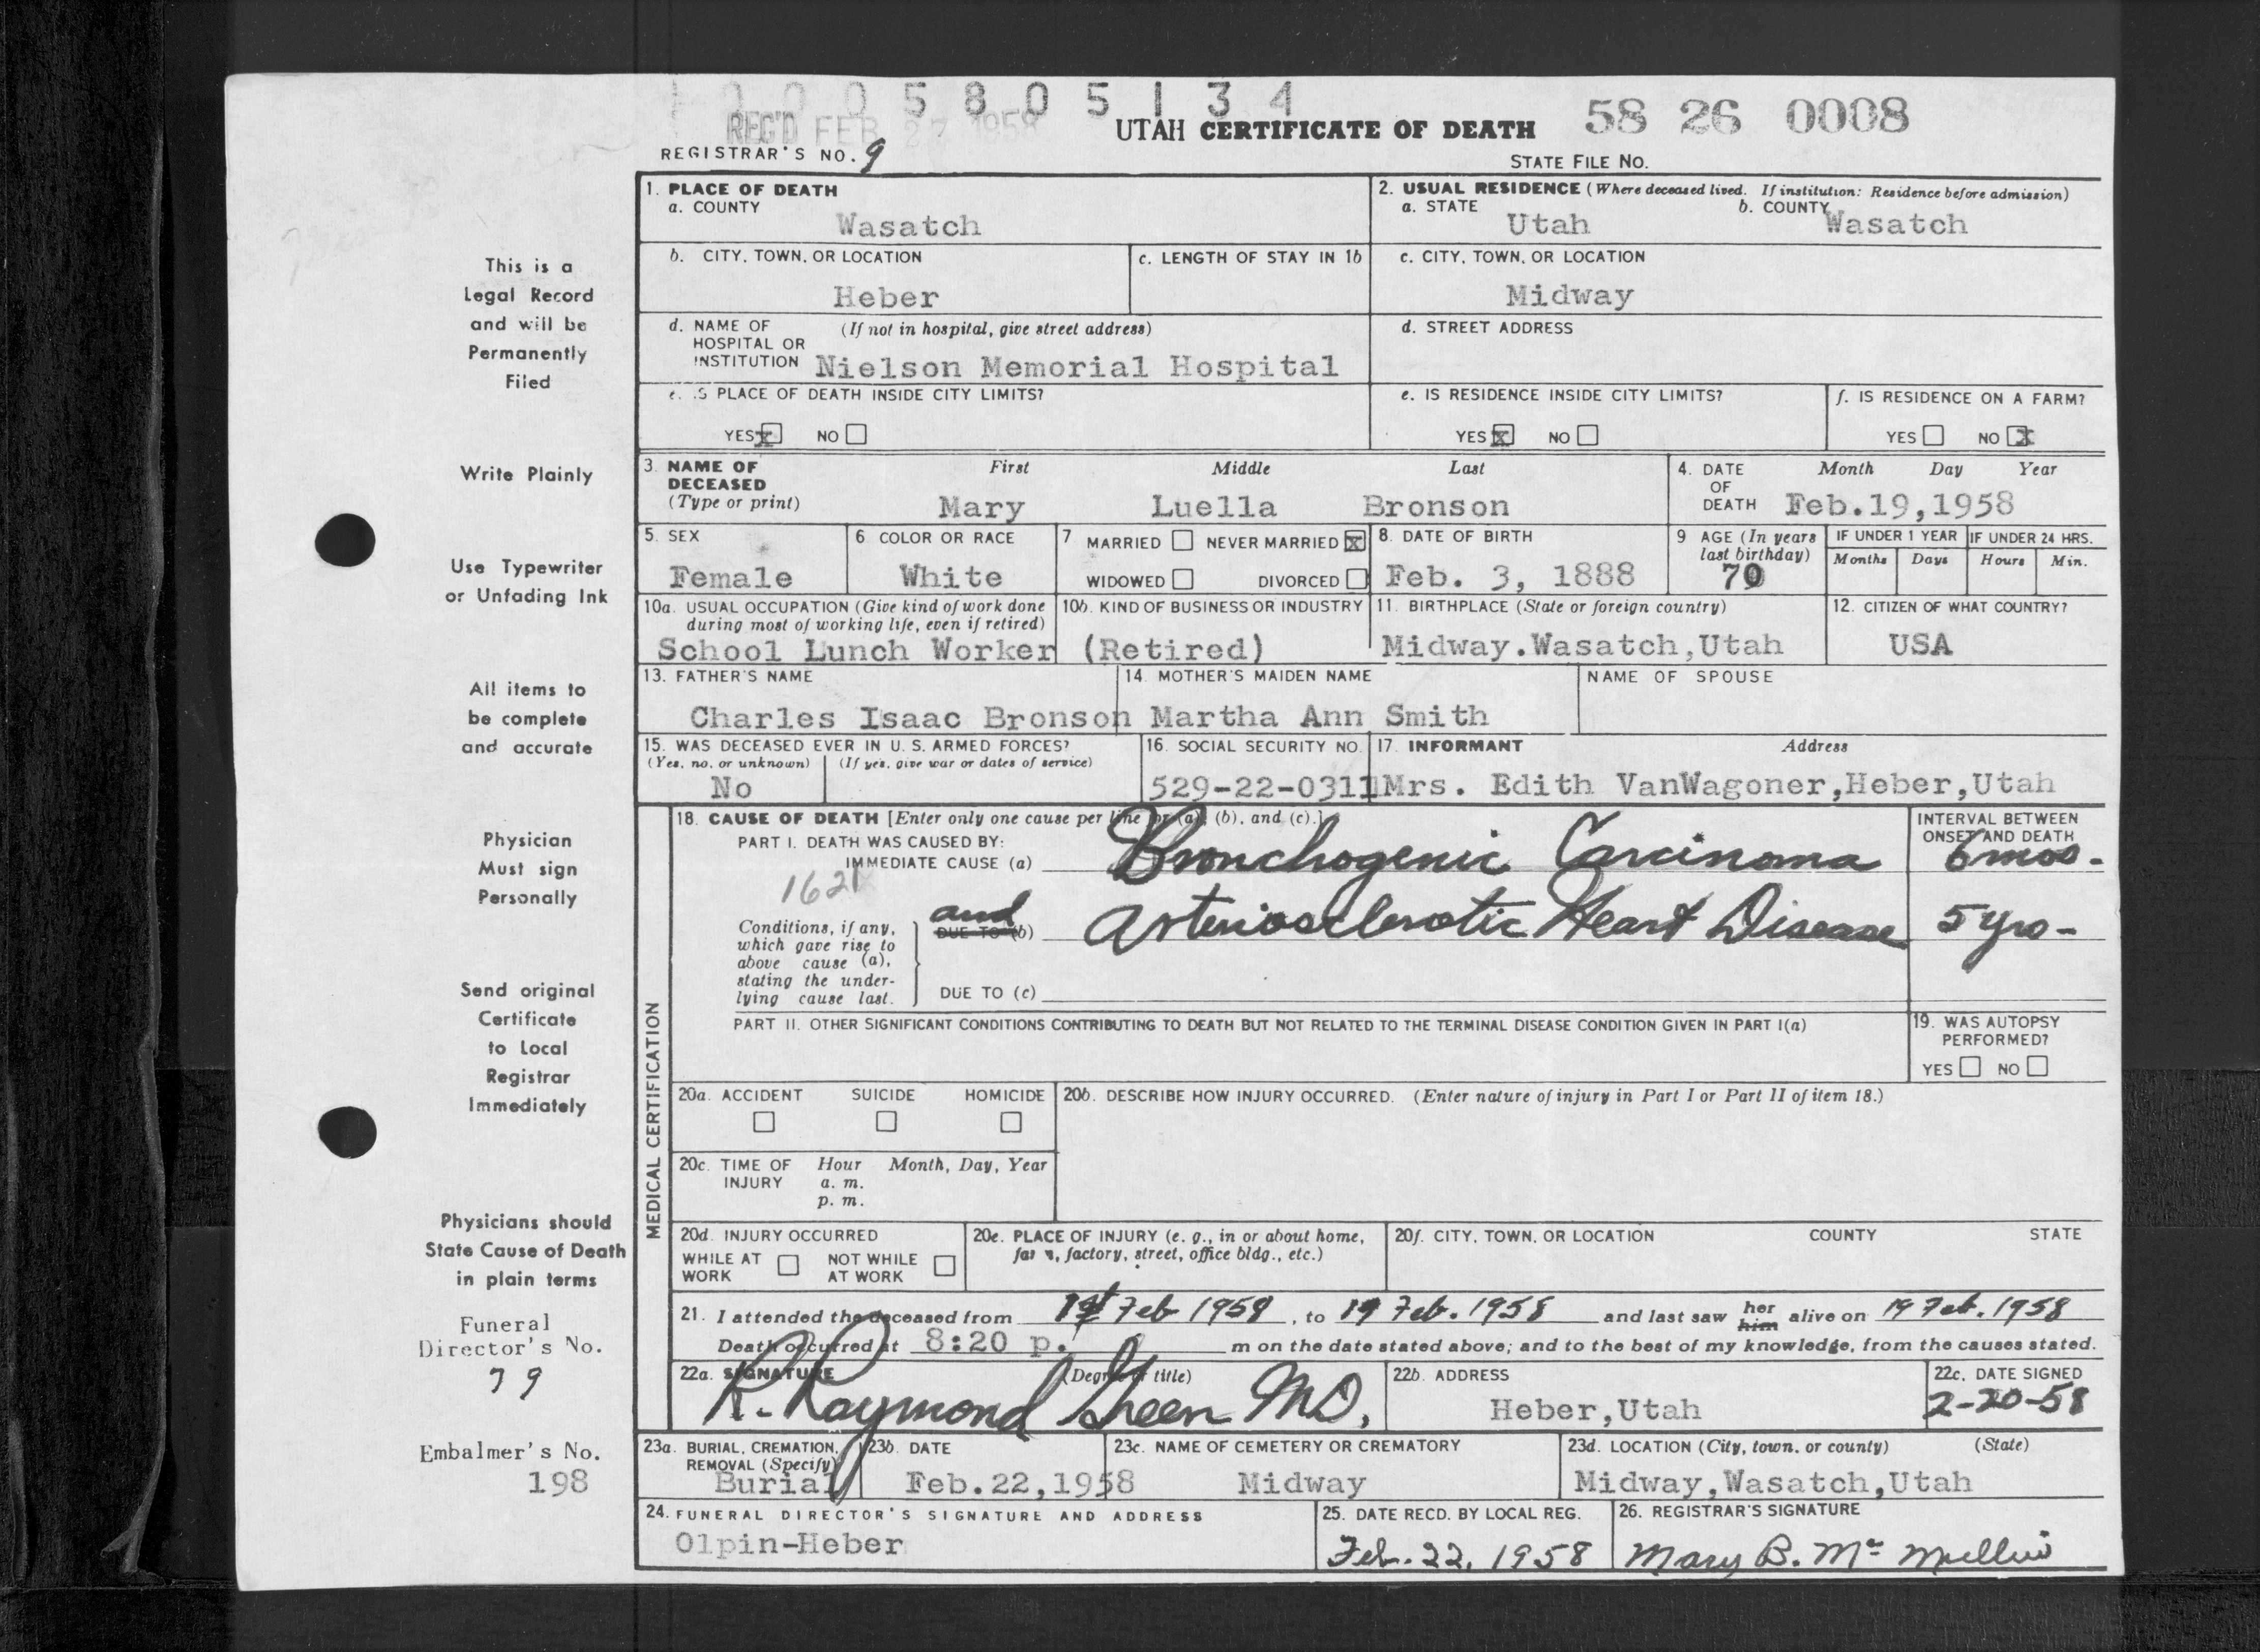 0 0 0 5 8 0 5 1 3 4
REC'D FEB 27 1958
UTAH CERTIFICATE OF DEATH
58 26 0008
REGISTRAR'S NO. 9
STATE FILE NO.
1. PLACE OF DEATH
a. COUNTY
Wasatch
2. USUAL RESIDENCE (Where deceased lived. If institution: Residence before admission)
a. STATE
Utah
b. COUNTY
Wasatch
b. CITY, TOWN, OR LOCATION
Heber
c. LENGTH OF STAY IN 1b
c. CITY, TOWN, OR LOCATION
Midway
d. NAME OF HOSPITAL OR INSTITUTION
(If not in hospital, give street address)
Nielson Memorial Hospital
d. STREET ADDRESS
e. IS PLACE OF DEATH INSIDE CITY LIMITS?
YES X NO
e. IS RESIDENCE INSIDE CITY LIMITS?
YES X NO
f. IS RESIDENCE ON A FARM?
YES NO X
3. NAME OF DECEASED
(Type or print)
First Middle Last
Mary Luella Bronson
4. DATE OF DEATH
Month Day Year
Feb.19,1958
5. SEX
Female
6 COLOR OR RACE
White
7 MARRIED NEVER MARRIED X
WIDOWED DIVORCED
8. DATE OF BIRTH
Feb. 3, 1888
9 AGE (In years last birthday)
70
IF UNDER 1 YEAR
Months Days
IF UNDER 24 HRS.
Hours Min.
10a. USUAL OCCUPATION (Give kind of work done during most of working life, even if retired)
School Lunch Worker
10b. KIND OF BUSINESS OR INDUSTRY
(Retired)
11. BIRTHPLACE (State or foreign country)
Midway.Wasatch,Utah
12. CITIZEN OF WHAT COUNTRY?
USA
13. FATHER'S NAME
Charles Isaac Bronson
14. MOTHER'S MAIDEN NAME
Martha Ann Smith
NAME OF SPOUSE
15. WAS DECEASED EVER IN U. S. ARMED FORCES?
(Yes, no, or unknown) (If yes, give war or dates of service)
No
16. SOCIAL SECURITY NO.
529-22-0311
17. INFORMANT Address
Mrs. Edith VanWagoner,Heber,Utah
MEDICAL CERTIFICATION
18. CAUSE OF DEATH [Enter only one cause per line for (a), (b), and (c).]
PART I. DEATH WAS CAUSED BY:
IMMEDIATE CAUSE (a) Bronchogenic Carcinoma
INTERVAL BETWEEN ONSET AND DEATH
6 mos-
1621
Conditions, if any, which gave rise to above cause (a), stating the underlying cause last.
and
DUE TO (b) Arteriosclerotic Heart Disease
5 yrs-
DUE TO (c)
PART II. OTHER SIGNIFICANT CONDITIONS CONTRIBUTING TO DEATH BUT NOT RELATED TO THE TERMINAL DISEASE CONDITION GIVEN IN PART I(a)
19. WAS AUTOPSY PERFORMED?
YES NO
20a. ACCIDENT SUICIDE HOMICIDE
20b. DESCRIBE HOW INJURY OCCURRED. (Enter nature of injury in Part I or Part II of item 18.)
20c. TIME OF INJURY
Hour Month, Day, Year
a. m.
p. m.
20d. INJURY OCCURRED
WHILE AT WORK NOT WHILE AT WORK
20e. PLACE OF INJURY (e. g., in or about home, farm, factory, street, office bldg., etc.)
20f. CITY, TOWN, OR LOCATION COUNTY STATE
21. I attended the deceased from Feb 1958, to 19 Feb. 1958 and last saw her him alive on 19 Feb. 1958
Death occurred at 8:20 p. m on the date stated above; and to the best of my knowledge, from the causes stated.
22a. SIGNATURE (Degree or title)
R. Raymond Green MD.
22b. ADDRESS
Heber,Utah
22c. DATE SIGNED
2-20-58
23a. BURIAL, CREMATION, REMOVAL (Specify)
Burial
23b. DATE
Feb.22,1958
23c. NAME OF CEMETERY OR CREMATORY
Midway
23d. LOCATION (City, town, or county) (State)
Midway,Wasatch,Utah
24. FUNERAL DIRECTOR'S SIGNATURE AND ADDRESS
Olpin-Heber
25. DATE RECD. BY LOCAL REG.
Feb. 22, 1958
26. REGISTRAR'S SIGNATURE
Mary B. Mc Mullin
This is a
Legal Record
and will be
Permanently
Filed
Write Plainly
Use Typewriter
or Unfading Ink
All items to
be complete
and accurate
Physician
Must sign
Personally
Send original
Certificate
to Local
Registrar
Immediately
Physicians should
State Cause of Death
in plain terms
Funeral
Director's No.
79
Embalmer's No.
198